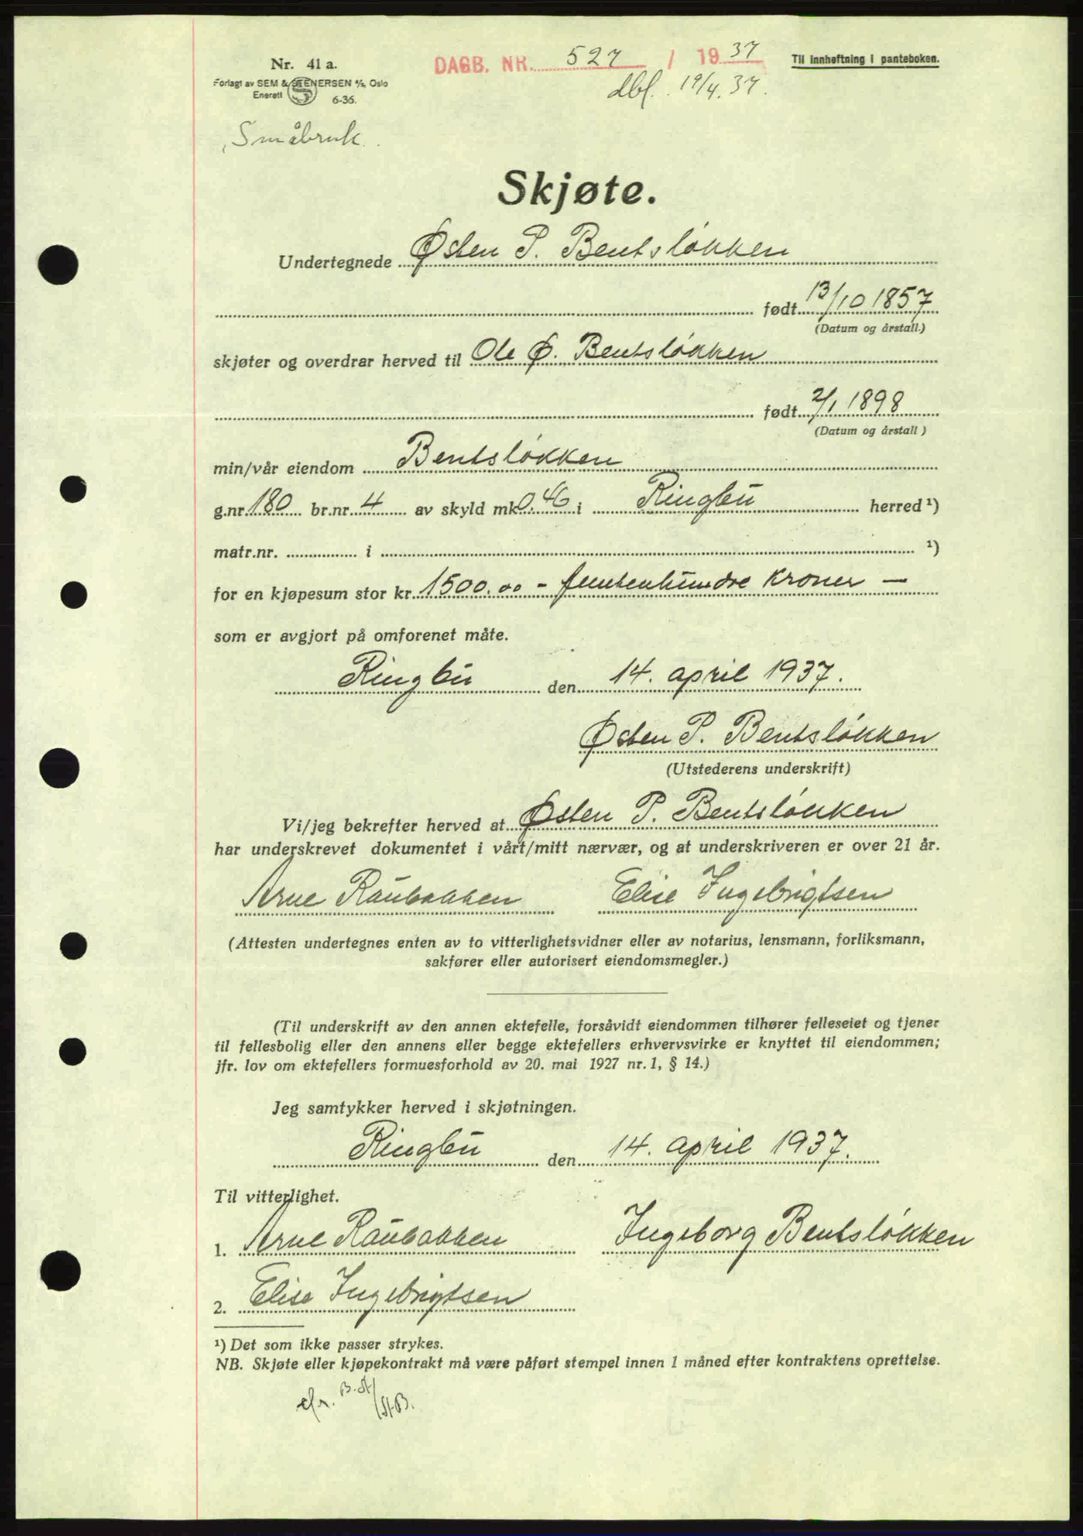 Nr. 41 a.
Forlagt av SEM & STENERSEN A/S, Oslo
Enerett 6-36.
DAGB. NR. 527 / 1937
dbf. 19/4.37.
Til innheftning i panteboken.
Småbruk.
Skjøte.
Undertegnede Østen P. Bentsløkken
født 13/10 1857
(Datum og årstall.)
skjøter og overdrar herved til Ole Ø. Bentsløkken
født 2/1 1898
(Datum og årstall)
min/vår eiendom Bentsløkken
g.nr. 180 br.nr. 4 av skyld mk. 0.46 i Ringbu herred ¹)
matr.nr. i ¹)
for en kjøpesum stor kr. 1500.00 - femtenhundre kroner —
som er avgjort på omforenet måte.
Ringbu den 14. april 1937.
Østen P. Bentsløkken
(Utstederens underskrift)
Vi/jeg bekrefter herved at Østen P. Bentsløkken
har underskrevet dokumentet i vårt/mitt nærvær, og at underskriveren er over 21 år.
Arne Raubakken Elise Ingebrigtsen
(Attesten undertegnes enten av to vitterlighetsvidner eller av notarius, lensmann, forliksmann,
sakfører eller autorisert eiendomsmegler.)
(Til underskrift av den annen ektefelle, forsåvidt eiendommen tilhører felleseiet og tjener
til fellesbolig eller den annens eller begge ektefellers erhvervsvirke er knyttet til eiendommen;
jfr. lov om ektefellers formuesforhold av 20. mai 1927 nr. 1, § 14.)
Jeg samtykker herved i skjøtningen.
Ringbu den 14. april 1937.
Til vitterlighet.
1. Arne Raubakken Ingeborg Bentsløkken
2. Elise Ingebrigtsen
¹) Det som ikke passer strykes.
NB. Skjøte eller kjøpekontrakt må være påført stempel innen 1 måned efter kontraktens oprettelse.